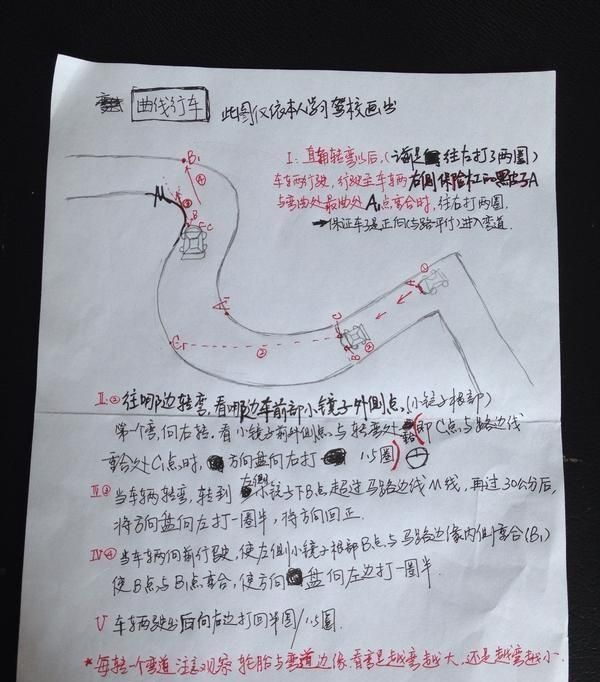 曲线行车 此图仅依本人学习驾校画出
I: 直角转弯以后,(前是往左打了两圈)
车车两行驶,行驶至车辆右侧保险杠 点A
与弯曲处最曲处A₁点重合时,往左打两圈.
→保证车子是正向(与路平行)进入弯道.
B₁
④
M
B
C
A₁
C₁
②
C
B
②
①
A
II:② 往哪边转弯,看哪边车前部小镜子外侧点.(小镜子根部)
第一个弯,向右转.看小镜子前外侧点与转弯处(即C点与路边线
重合处C₁点时, 方向盘向右打 1.5圈)
III③ 当车辆转弯,转到左侧小镜子下B点超过马路边线M线,再过30公分后,
将方向盘向左打一圈半,将方向回正.
IV④ 当车辆向前行驶,使左侧小镜子根部B点与马路边缘内侧重合(B₁)
使B点与B₁点重合,使方向盘向左边打一圈半.
V 车辆驶出后向右边打回半圈/1.5圈.
*每转一个弯道注意观察轮胎与弯道边缘.看看是越弯越大.还是越弯越小.